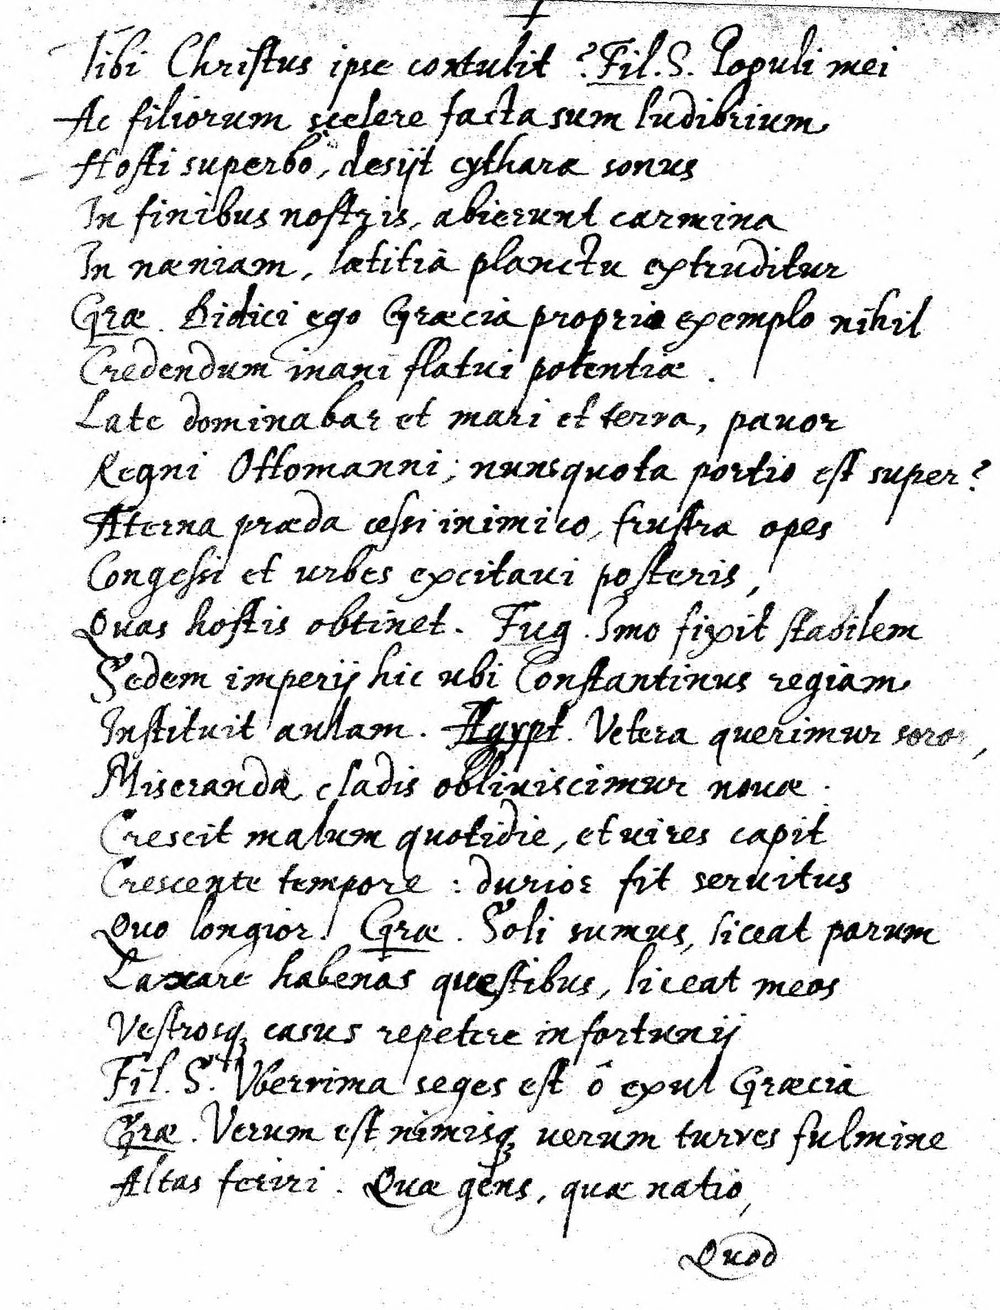 Tibi Christus ipse contulit? Fil. S. Populi mei
Ac filiorum scelere facta sum ludibrium
Hosti superbo, desijt cytharæ sonus
In finibus nostris, abierunt carmina
In næniam, lætitia planctu extruditur
Græ. Didici ego Græcia proprio exemplo nihil
Credendum inani flatui potentiæ.
Late dominabar et mari et terra, pauor
Regni Ottomanni; nunc quota portio est super?
Æterna præda cessi inimico, frustra opes
Congessi et urbes excitaui posteris,
Quas hostis obtinet. Fug. Imo fixit stabilem
Sedem imperij hic ubi Constantinus regiam
Instituit aulam. Ægypt. Vetera querimur soror,
Miserandæ cladis obliuiscimur nouæ.
Crescit malum quotidie, et uires capit
Crescente tempore: durior fit seruitus
Quo longior. Græ. Soli sumus, liceat parum
Laxare habenas questibus, liceat meos
Vestrosq; casus repetere infortunij
Fil. S. Vberrima seges est ô exul Græcia
Græ. Verum est nimisq; uerum turres fulmine
Altas feriri. Quæ gens, quæ natio,
Quod